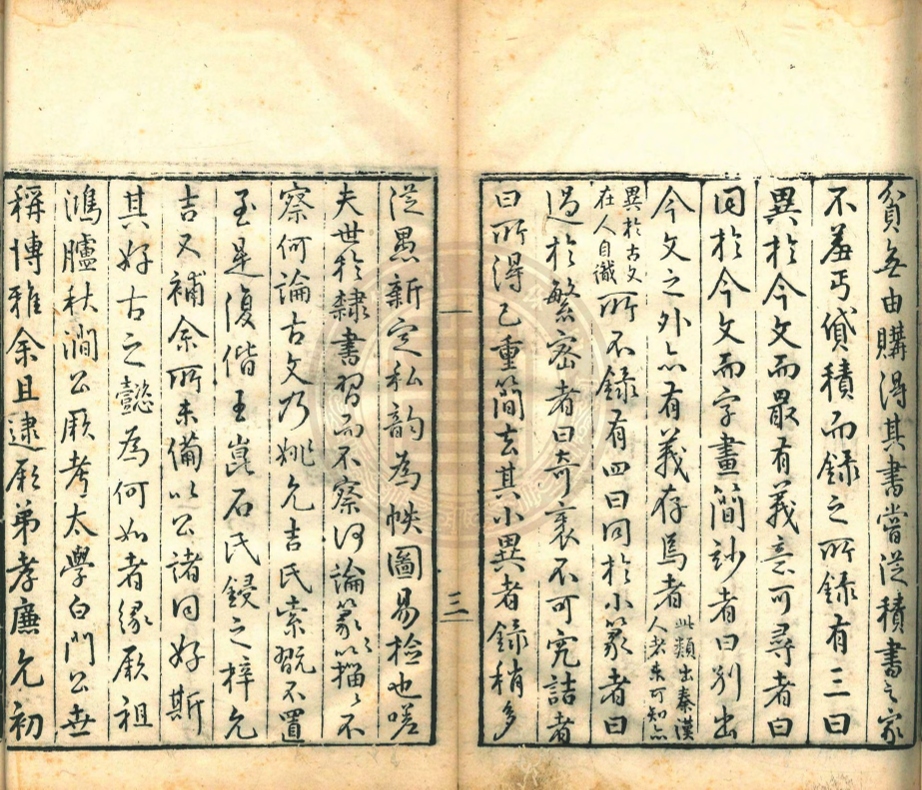 貧無由購得其書嘗從積書之家
不羞丐貸積而錄之所錄有三曰
異於今文而最有義意可尋者曰
同於今文而字畫簡妙者曰別出
今文之外亦有義存焉者此類出秦漢人者未可知亦
異於古文在人自識所不錄有四曰同於小篆者曰
過於繁密者曰奇衺不可究詰者
曰所得已重簡去其小異者錄稍多
三
從愚新定私韵為帙圖易檢也嗟
夫世於隸書習而不察何論篆〻籀〻不
察何論古文乃姚允吉氏索翫不置
至是復偕王崑石氏鋟之梓允
吉又補余所未備以公諸同好斯
其好古之懿為何如者緣厥祖
鴻臚秋澗公厥考太學白門公世
稱博雅余且逮厥弟孝廉允初